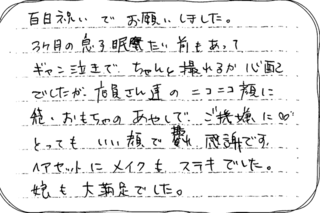 百日祝い で お願い しました。
3ヶ月の息子 眠たい 前もあって
ギャン泣きで、ちゃんと撮れるか 心配
でしたが 店員さん達の ニコニコ顔に
おもちゃの あやしで、ご機嫌に♡
とっても いい顔で 撮れ 感謝です。
ヘアセットに メイクも ステキでした。
娘も 大満足でした。